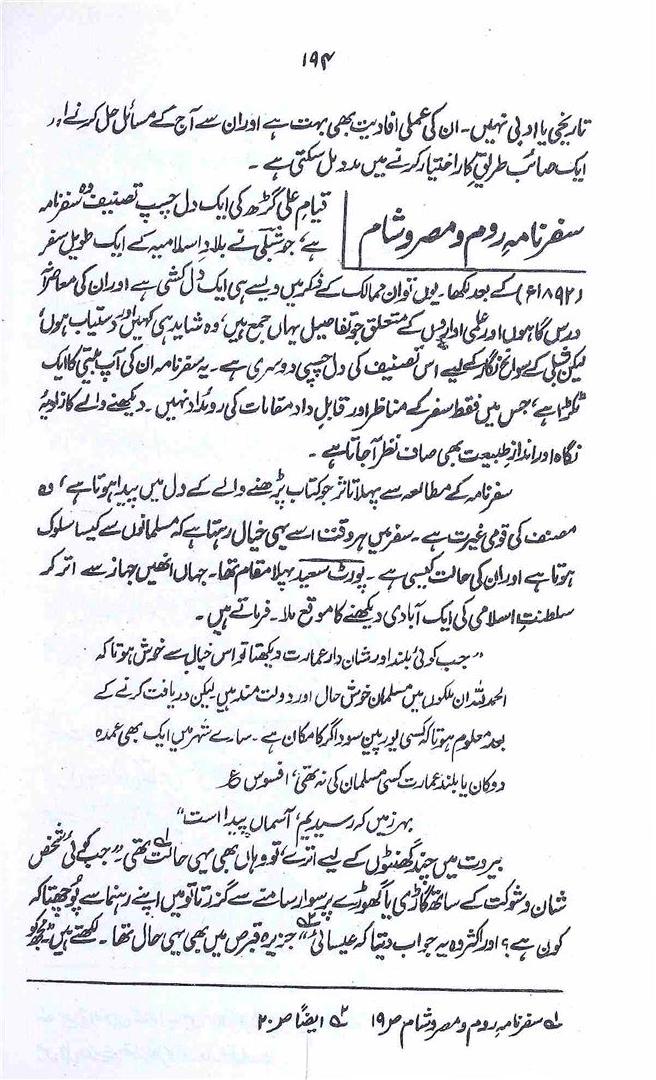 ۱۹۴
تاریخی یا ادبی نہیں۔ ان کی عملی افادیت بھی بہت ہے اور ان سے آج کے مسائل حل کرنے اور
ایک صائب طریقِ کار اختیار کرنے میں مدد مل سکتی ہے۔
سفرنامہ روم و مصر و شام
قیامِ علی گڑھ کی ایک دل چسپ تصنیف وہ سفرنامہ
ہے، جو شبلی نے بلادِ اسلامیہ کے ایک طویل سفر
(۱۸۹۲ء) کے بعد لکھا۔ یوں تو ان ممالک کے ذکر میں ویسے ہی ایک دل کشی ہے اور ان کی معاصرانہ
درس گاہوں اور علمی اداروں کے متعلق جو تفاصیل یہاں جمع ہیں، وہ شاید ہی کہیں اور دستیاب ہوں،
لیکن شبلی کے سوانح نگار کے لیے اس تصنیف کی دل چسپی دوسری ہے۔ یہ سفرنامہ ان کی آپ بیتی کا ایک
ٹکڑا ہے، جس میں فقط سفر کے مناظر اور قابلِ داد مقامات کی روئداد نہیں۔ دیکھنے والے کا زاویۂ
نگاہ اور اندازِ طبیعت بھی صاف نظر آ جاتا ہے۔
سفرنامہ کے مطالعہ سے پہلا تاثر جو کتاب پڑھنے والے کے دل میں پیدا ہوتا ہے، وہ
مصنف کی قومی غیرت ہے۔ سفر میں ہر وقت اسے یہی خیال رہتا ہے کہ مسلمانوں سے کیسا سلوک
ہوتا ہے اور ان کی حالت کیسی ہے۔ پورٹ سعید پہلا مقام تھا۔ جہاں انھیں جہاز سے اتر کر
سلطنتِ اسلامی کی ایک آبادی دیکھنے کا موقع ملا۔ فرماتے ہیں۔
”جب کوئی بلند اور شان دار عمارت دیکھتا تو اس خیال سے خوش ہوتا کہ
الحمد للہ ان ملکوں میں مسلمان خوش حال اور دولت مند ہیں لیکن دریافت کرنے کے
بعد معلوم ہوتا کہ کسی یورپین سوداگر کا مکان ہے۔ سارے شہر میں ایک بھی عمدہ
دوکان یا بلند عمارت کسی مسلمان کی نہ تھی، افسوس ع
بہر زمیں کہ رسیدیم آسماں پیدا است“
بیروت میں چند گھنٹوں کے لیے اترے، تو وہاں بھی یہی حالت تھی۱ ”جب کوئی شخص
شان و شوکت کے ساتھ گاڑی یا گھوڑے پر سوار سامنے سے گزرتا تو میں اپنے رہنما سے پوچھتا کہ
کون ہے؟ اور اکثر وہ یہ جواب دیتا کہ عیسائی“۲ جزیرہ قبرص میں بھی یہی حال تھا۔ لکھتے ہیں ”مجھ کو
۱ سفرنامہ روم و مصر و شام ص ۱۹ ۲ ایضاً ص ۲۰